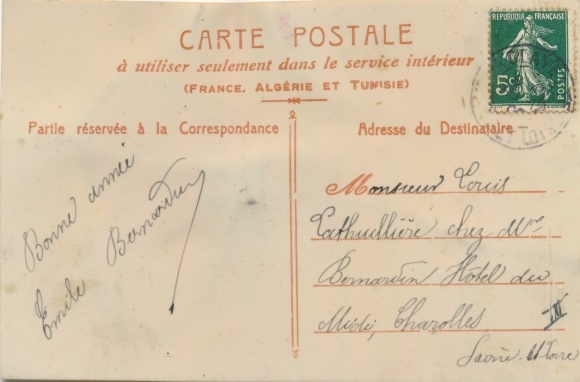 CARTE POSTALE
à utiliser seulement dans le service intérieur
(FRANCE, ALGÉRIE ET TUNISIE)
Partie réservée à la Correspondance
Bonne année
Emile Bernardin
Adresse du Destinataire
Monsieur Louis
Lathuillière chez Mme
Bernardin Hôtel du
Midi, Charolles
Saône et Loire
REPUBLIQUE FRANÇAISE
5c
POSTES